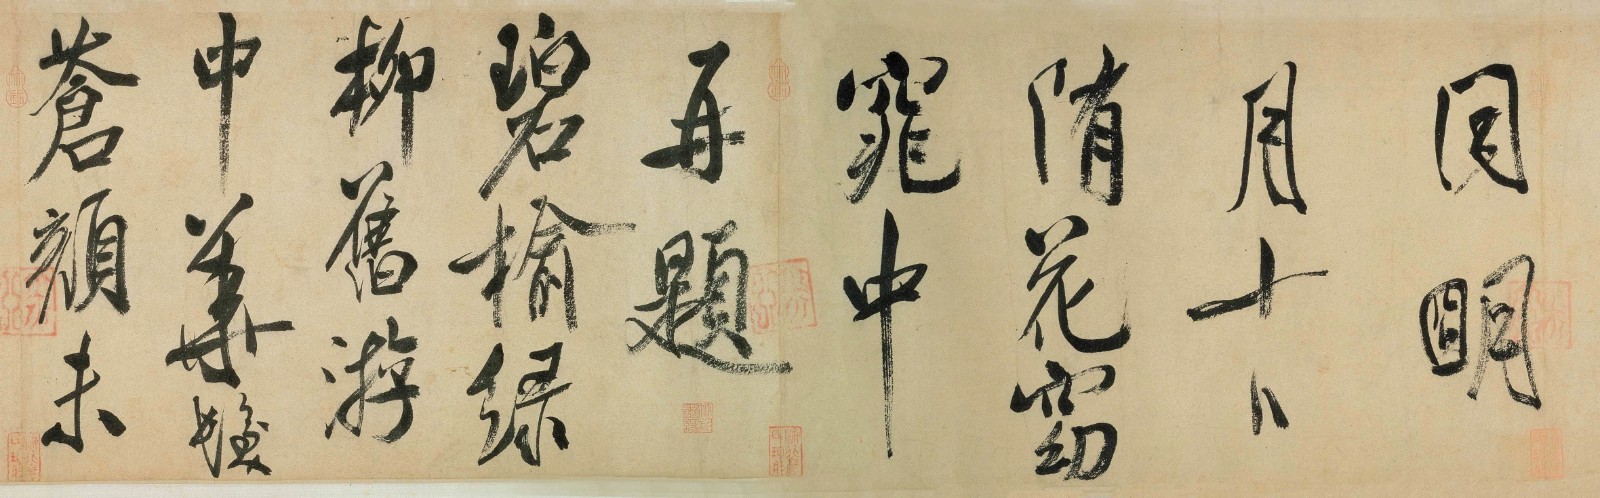 同明
月十日
隋花窈
窕中
再題
碧榆綠
柳舊游
中華髮
蒼顏未